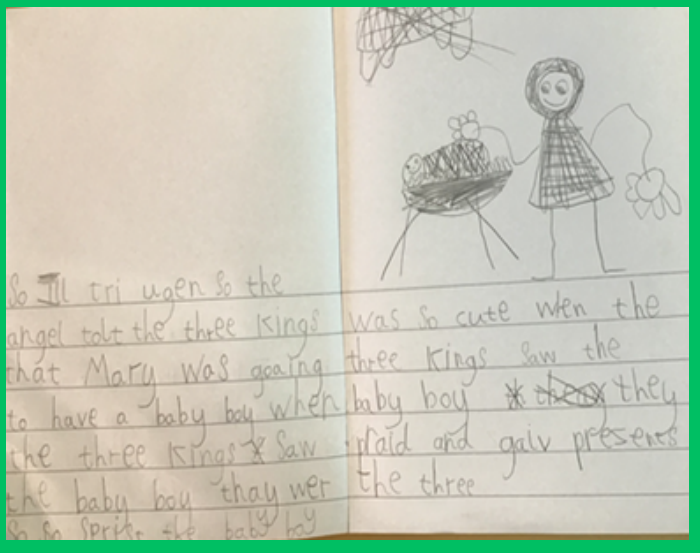 So Il tri ugen so the
angel tolt the three Kings
that Mary was goaing
to have a baby boy when
the three Kings saw
the baby boy thay wer
so so sprise the baby boy
was so cute when the
three Kings saw the
baby boy they
praid and gaiv presents
the three